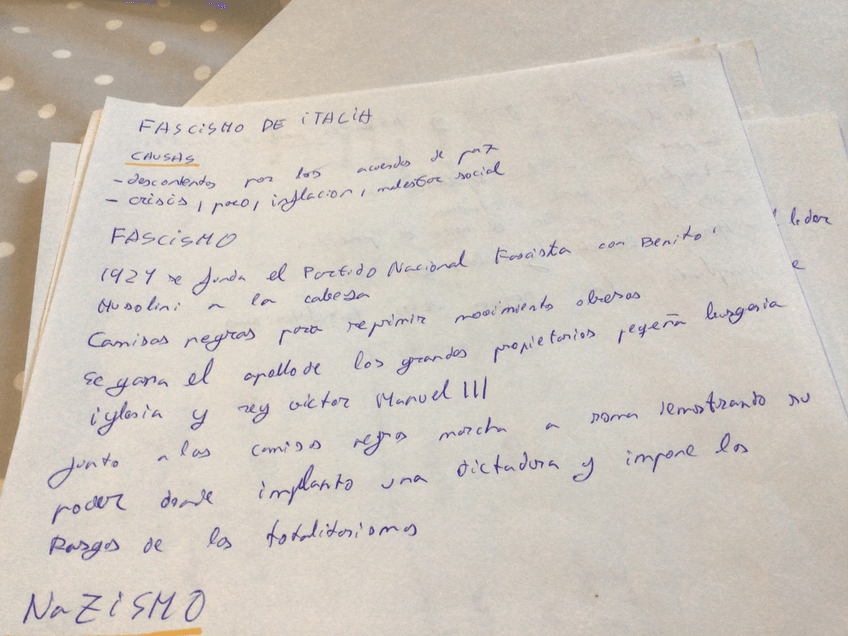 FASCISMO DE ITALIA
CAUSAS
- descontentos por los acuerdos de paz
- crisis, paro, inflacion, malestar social
FASCISMO
1924 se funda el Partido Nacional Fascista con Benito
Musolini a la cabesa
Camisas negras para reprimir movimiento obreros
se gana el apollo de los grandes propietarios pegeña burgesia
iglesia y rey victor Manuel III
junto a las camisas negras marcha a roma demostrando su
poder donde implanto una dictadura y impone los
Rasgos de los totalitarismos
NaZiSMO
lider
e